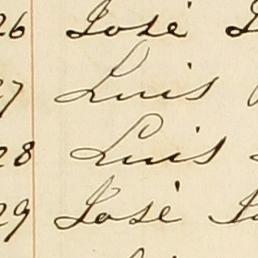 26 José
27 Luis
28 Luis
29 José